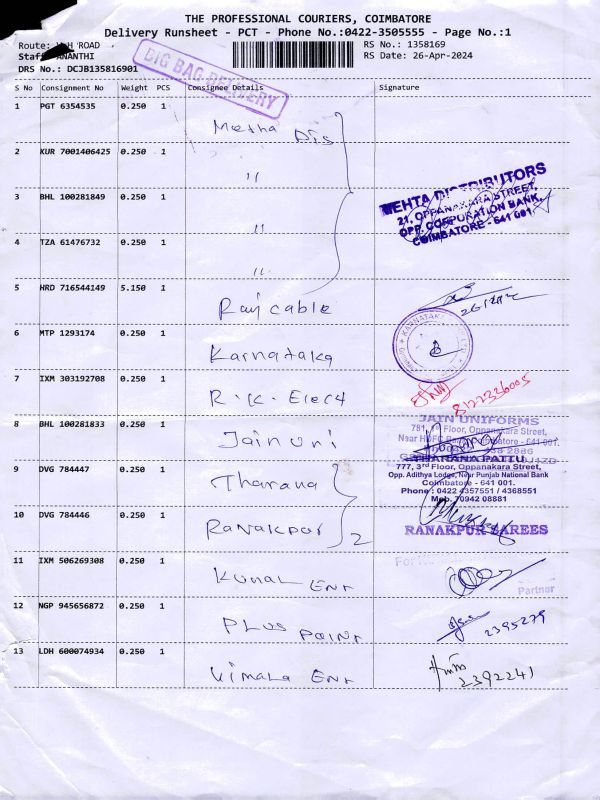 THE PROFESSIONAL COURIERS, COIMBATORE
Delivery Runsheet - PCT - Phone No.:0422-3505555 - Page No.:1
Route: ROAD
RS No.: 1358169
Staff ANANTHI
RS Date: 26-Apr-2024
DRS No.: DCJB135816901
BIG BAG DELIVERY
S No Consignment No Weight PCS Consignee Details Signature
1 PGT 6354535 0.250 1 Metha Dis
2 KUR 7001406425 0.250 1 "
3 BHL 100281849 0.250 1 "
MEHTA DISTRIBUTORS
21, OPPANAKARA STREET,
OPP. CORPORATION BANK,
COIMBATORE - 641 001.
4 TZA 61476732 0.250 1 "
5 HRD 716544149 5.150 1 Raj cable
6 MTP 1293174 0.250 1 Karnataka
KARNATAKA
7 IXM 303192708 0.250 1 R.K. Elect
8122336005
8 BHL 100281833 0.250 1 Jain uni
JAIN UNIFORMS
781, 1st Floor, Oppanakara Street,
Near HDFC Coimbatore - 641 001.
9 DVG 784447 0.250 1 Tharana
THARANA PATTU
777, 3rd Floor, Oppanakara Street,
Opp. Adithya Lodge, Near Punjab National Bank
Coimbatore - 641 001.
Phone : 0422 4357551 / 4368551
Mob. 70942 08881
10 DVG 784446 0.250 1 Ranakpur 2
RANAKPUR SAREES
11 IXM 506269308 0.250 1 Kunal Ent
For
Partner
12 NGP 945656872 0.250 1 Plus Point
2395279
13 LDH 600074934 0.250 1 Vimala Ent
2392241